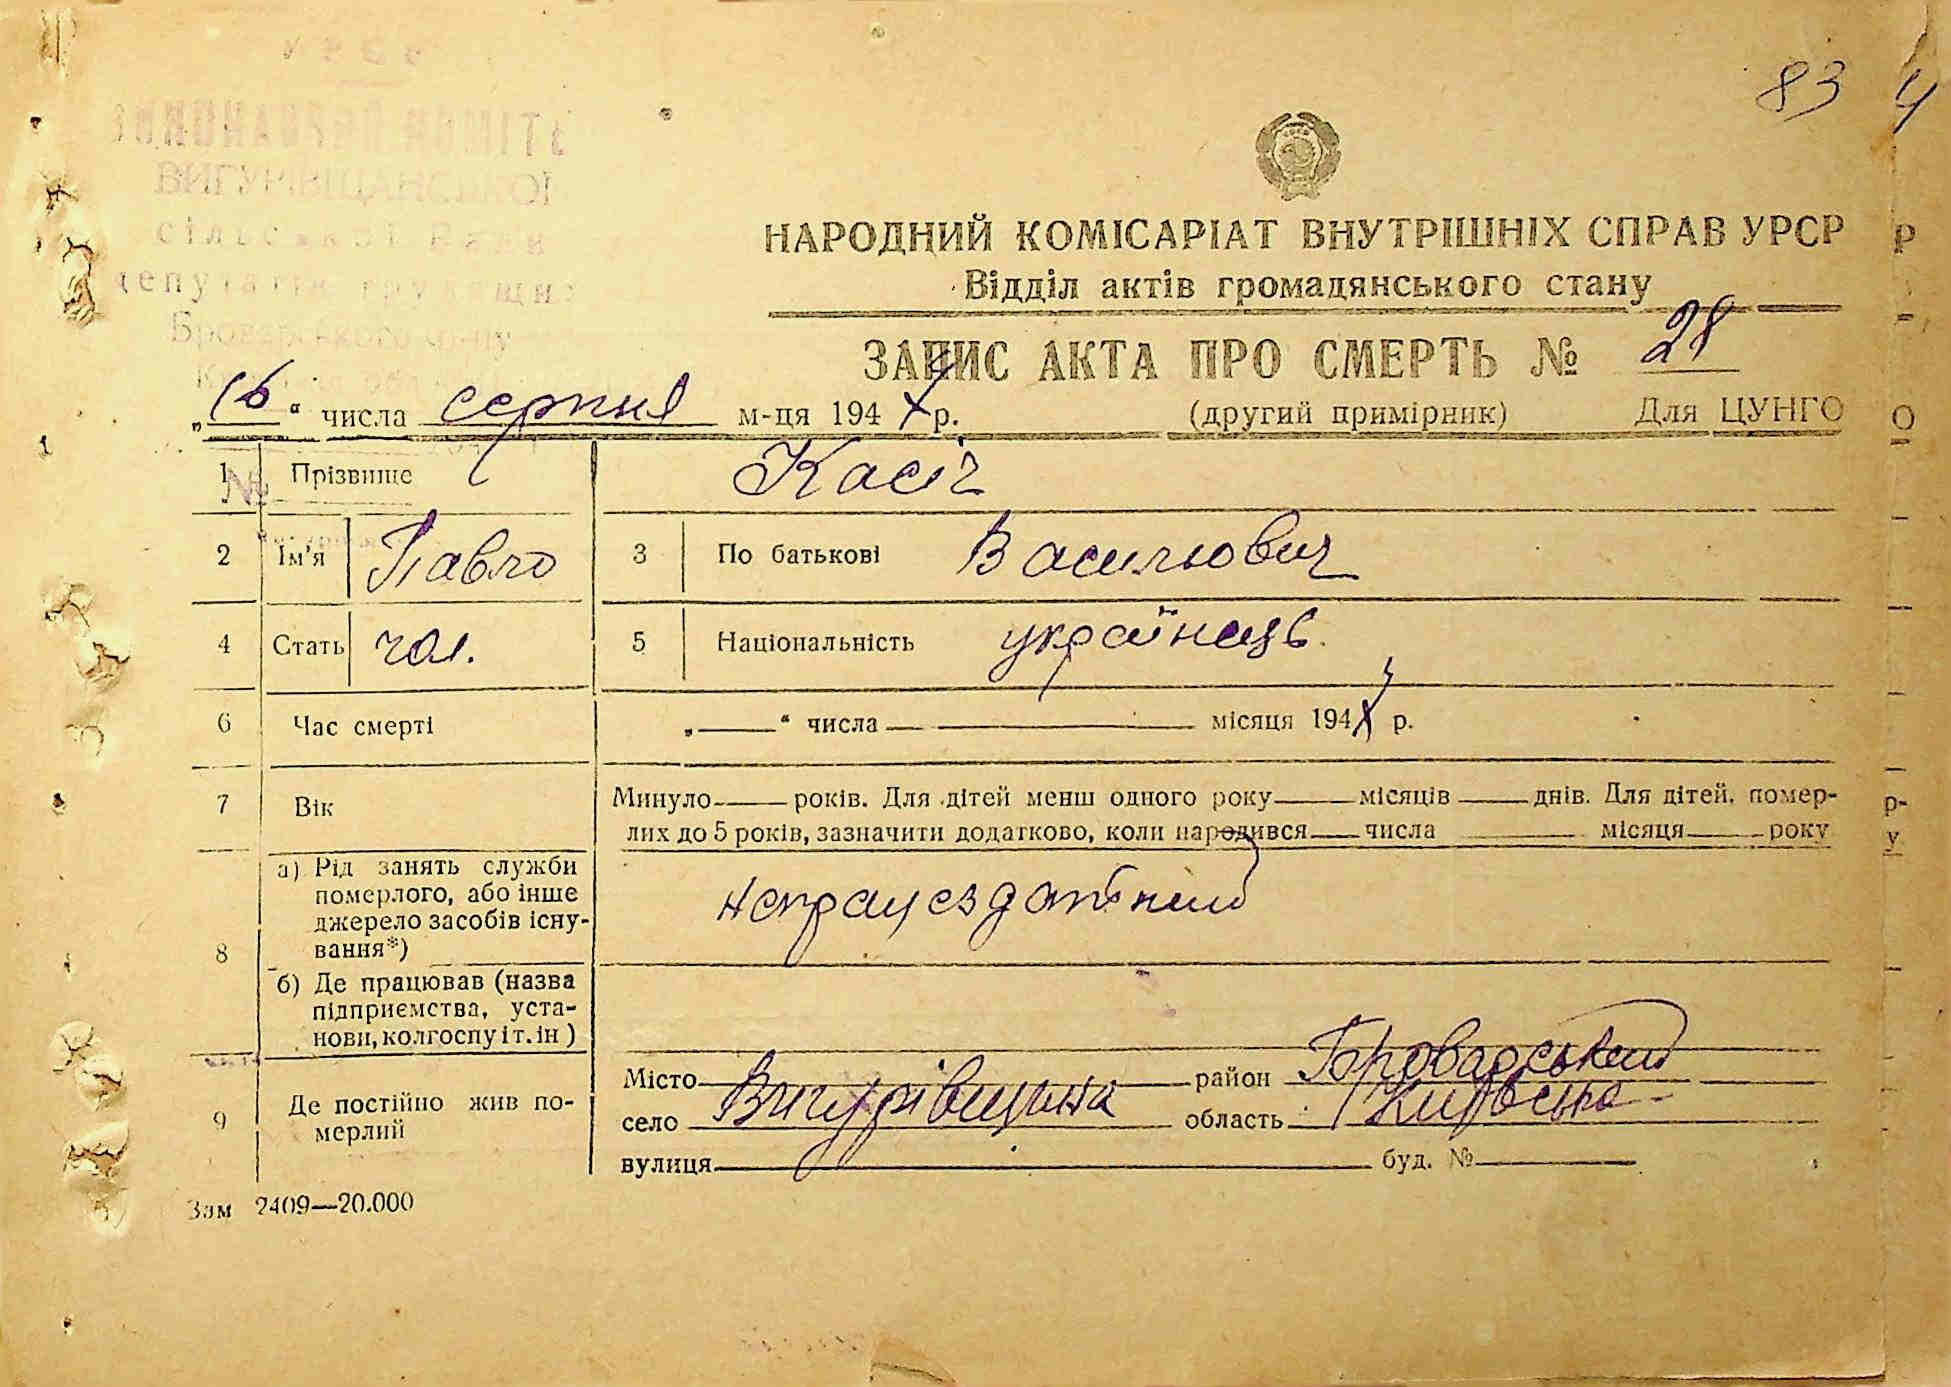 УРСР
ВИКОНАВЧИЙ КОМІТЕТ
ВИГУРІВЩАНСЬКОЇ
сільської Ради
депутатів трудящих
Броварського р-ну
83
НАРОДНИЙ КОМІСАРІАТ ВНУТРІШНІХ СПРАВ УРСР
Відділ актів громадянського стану
ЗАПИС АКТА ПРО СМЕРТЬ № 28
„16“ числа серпня м-ця 194 р. (другий примірник) Для ЦУНГО
1 Прізвище Касіч
2 Ім'я Павло 3 По батькові Васильович
4 Стать чол. 5 Національність українець.
6 Час смерті „ “ числа місяця 194 р.
7 Вік Минуло років. Для дітей менш одного року місяців днів. Для дітей, помер-
лих до 5 років, зазначити додатково, коли народився числа місяця року
8 а) Рід занять служби
померлого, або інше
джерело засобів існу-
вання*) непрацездатний
б) Де працював (назва
підприємства, уста-
нови, колгоспу і т. ін)
9 Де постійно жив по-
мерлий
Місто район Броварський
село Вигурівщина область Київська
вулиця буд. №
Зам 2409—20.000